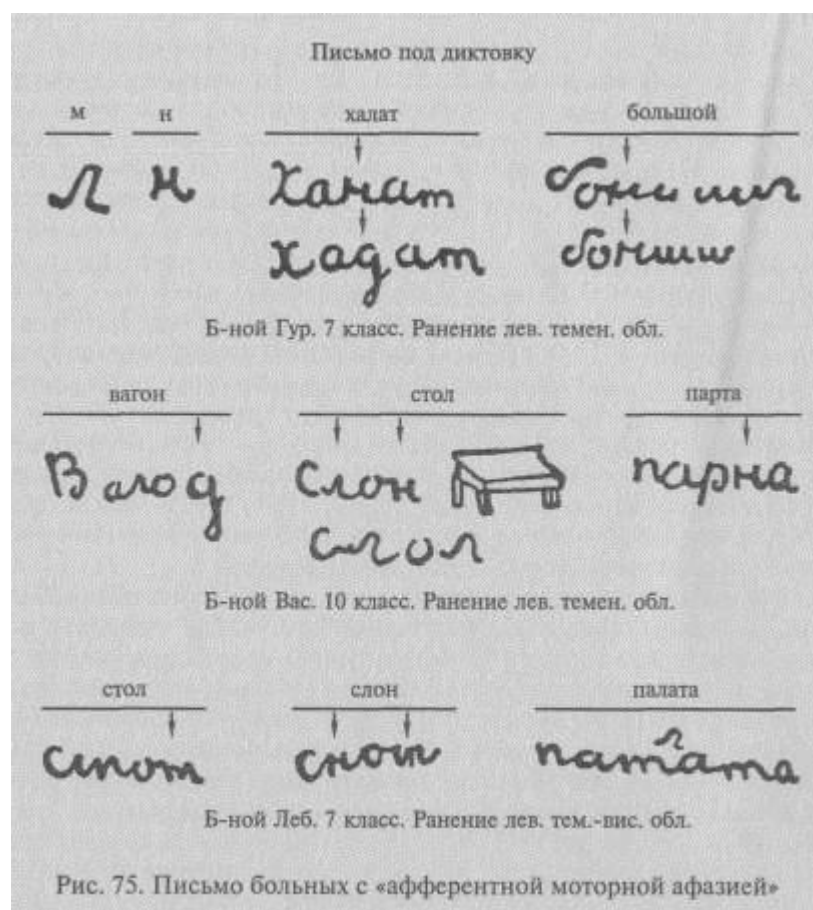 Письмо под диктовку
м н халат большой
л н ханат
хадат
Б-ной Гур. 7 класс. Ранение лев. темен. обл.
вагон стол парта
Вагод слон парна
слол
Б-ной Вас. 10 класс. Ранение лев. темен. обл.
стол слон палата
стот снот патата
л
Б-ной Леб. 7 класс. Ранение лев. тем.-вис. обл.
Рис. 75. Письмо больных с «афферентной моторной афазией»